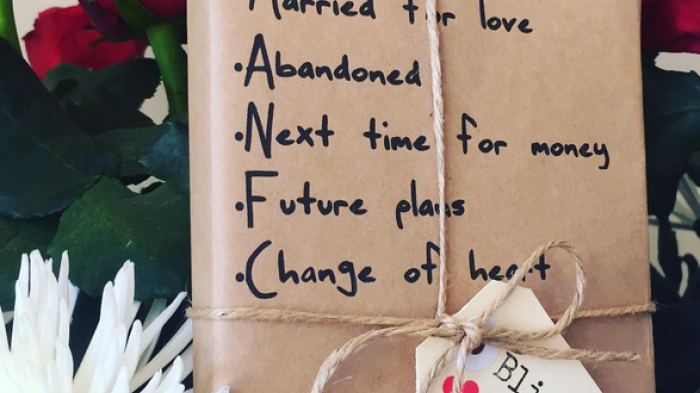 Married for love
•Abandoned
•Next time for money
•Future plans
•Change of heart
Bli